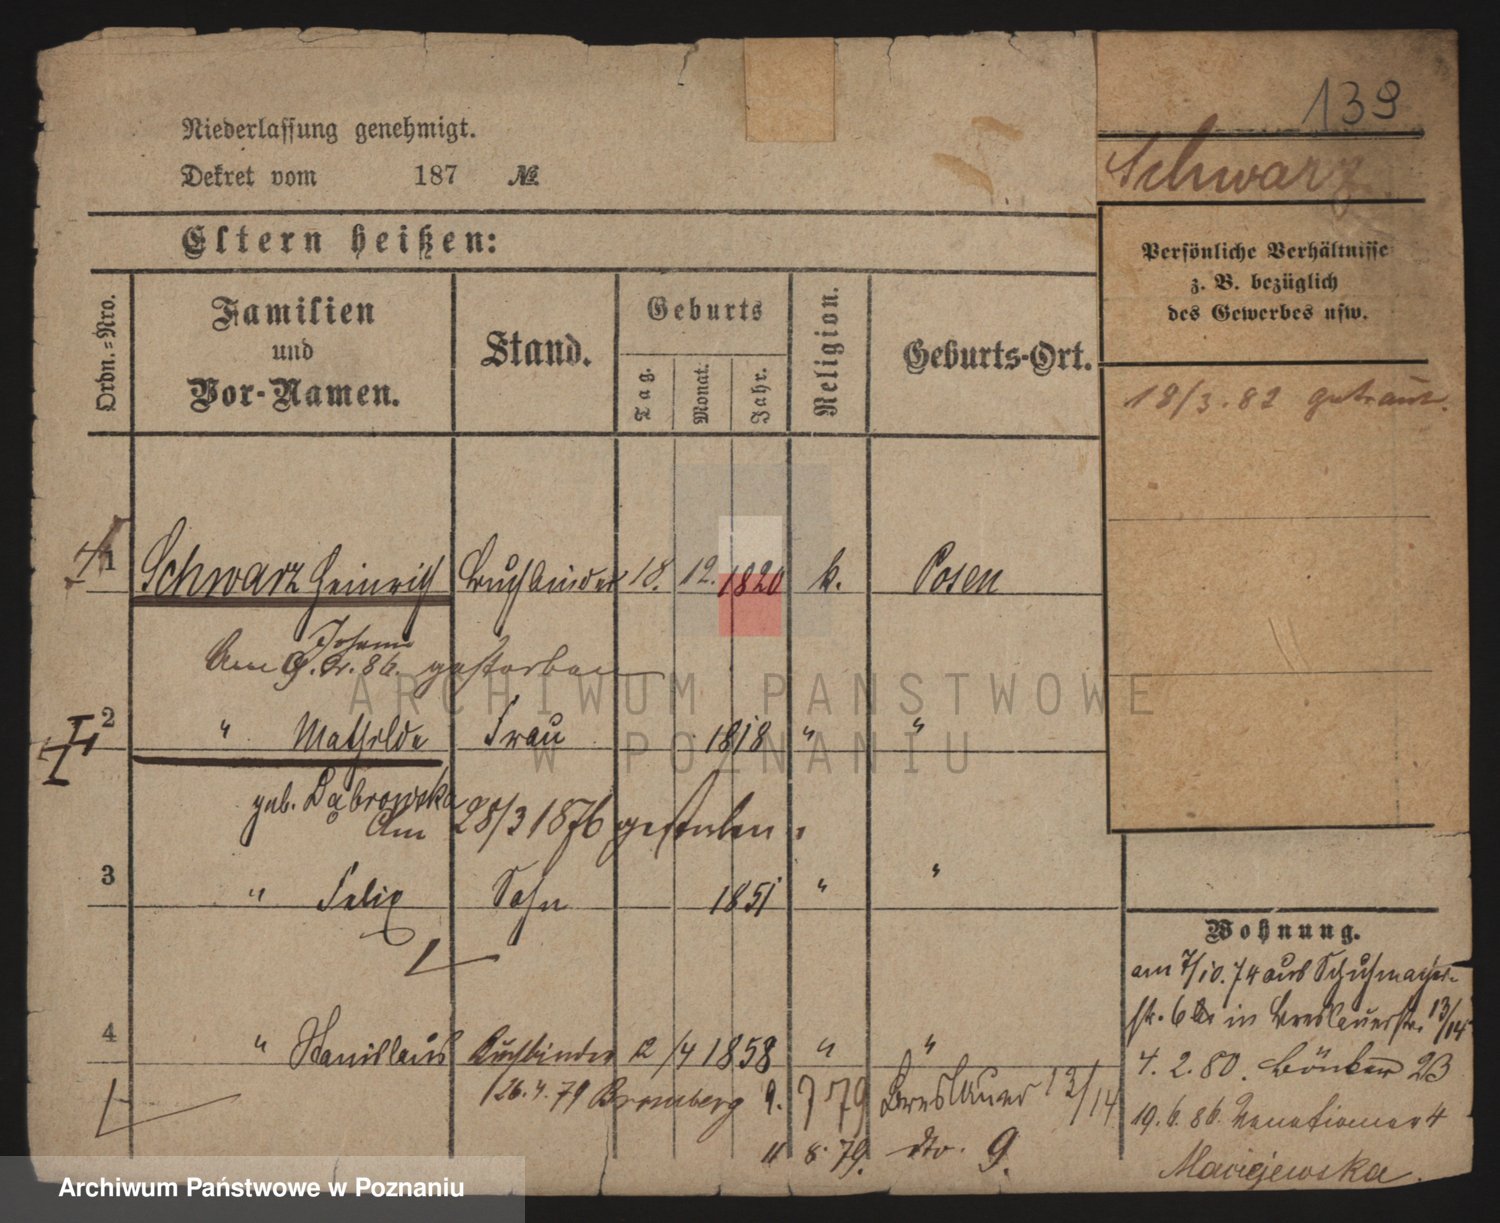 139
Schwarz
Niederlassung genehmigt.
Dekret vom 187 №
Eltern heißen:
Persönliche Verhältnisse
z. B. bezüglich
des Gewerbes usw.
18/3. 82 getraut.
Ordn.=Nro.
Familien
und
Vor-Namen.
Stand.
Geburts
Tag.
Monat.
Jahr.
Religion.
Geburts-Ort.
1 Schwarz Heinrich Buchbinder 18. 12. 1820 k. Posen
Johann
Am 86. gestorben
2 " Mathilde Frau 1818 " "
geb. Dąbrowska
Am 28/3 1876 gestorben.
3 " Felix Sohn 1851 " "
4 " Stanislaus Buchbinder 2/4 1858 " "
26. 4. 79 Bromberg 9. 7 79 Breslauer 13/14
11 8. 79. dto. 9.
Wohnung.
am 7/10. 74 aus Schuhmacher-
str. 6 in Breslauerstr. 13/14
4. 2. 80. 23
19. 6. 86. 4
Maciejewska.
ARCHIWUM PAŃSTWOWE
W POZNANIU
Archiwum Państwowe w Poznaniu